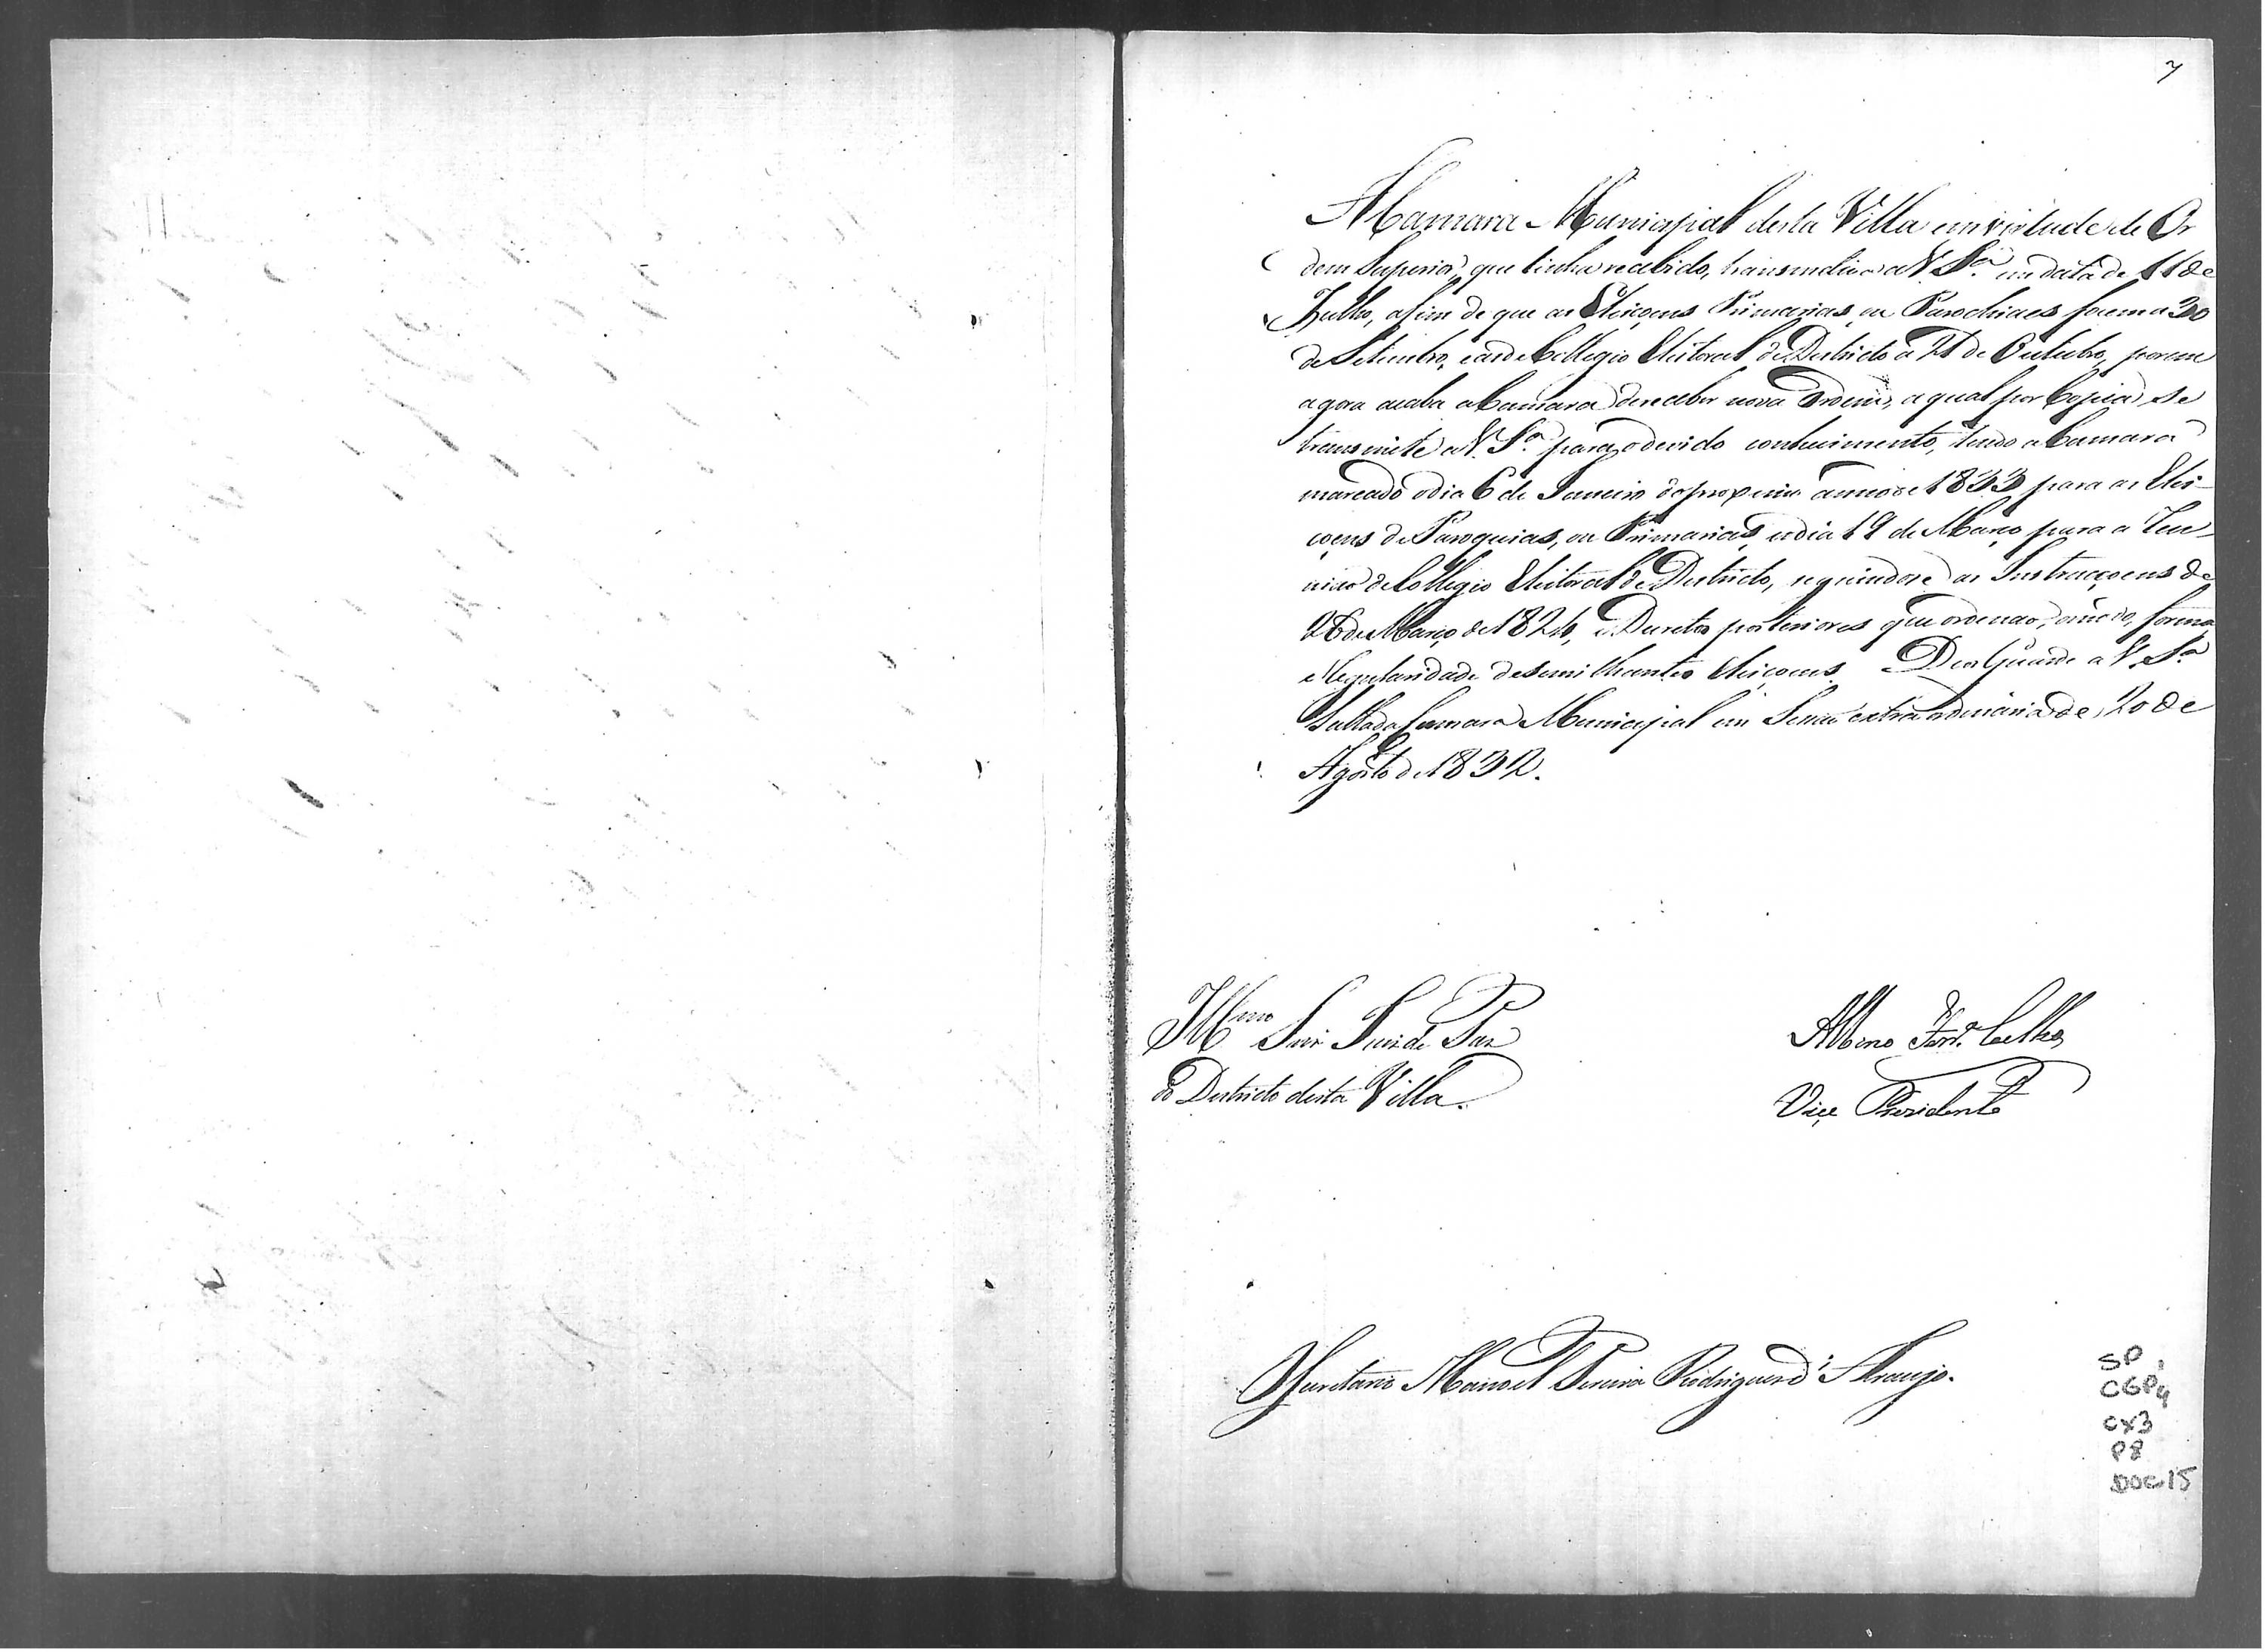 7
A Camara Municipal desta Villa em virtude de Or
dem Superior, que tinha recebido, transmitio a V. Sª em data de 11 de
Julho, afim de que as Eleiçoens Primarias, ou Parochiaes fossem a 30
de Setembro, e as do Collegio Eleitoral de Destricto a 21 de Outubro, porem
agora acaba a Camara de receber nova Ordem, a qual por Copia se
transmite a V. Sª para o devido conhecimento, tendo a Camara
marcado o dia 6 de Janeiro do proximo anno de 1833 para as Elei-
çoens de Paroquias, ou Primarias, e o dia 19 de Março para a Reu-
nião do Collegio Eleitoral de Destricto, seguindo se as Instrucçoens de
26 de Março de 1824, e Decretos posteriores que ordenao, o modo, forma,
e Regularidade de semilhantes Eleiçoens. Deos Guarde a V. Sª
Salla da Camara Municipal em Sessão extraordinaria de 20 de
Agosto de 1832.
Illmo Snr Juiz de Paz
do Destricto desta Villa.
Albino Coelho
Vice Prezidente
O Secretario Manoel Pereira Rodrigues d'Araujo.
SP
CGP4
CX3
P8
DOC15